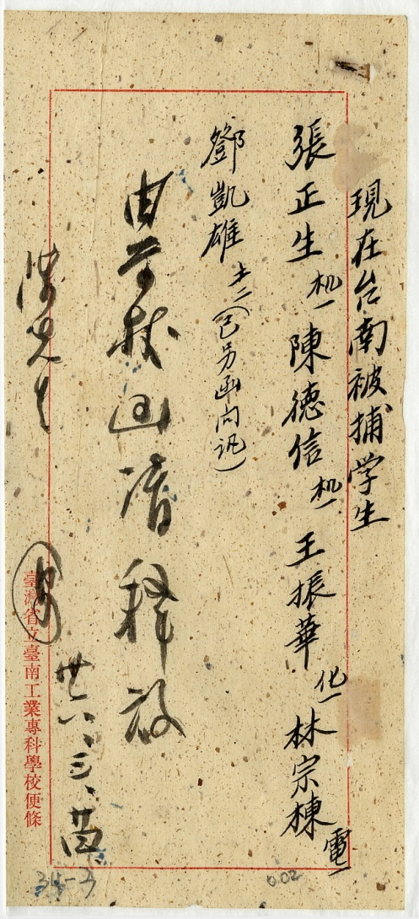 現在台南被捕学生
張正生机一陳德信机一王振華化一林宗棟電一
鄧凱雄土二(已另函问讯)
由学校函請释放
陳先生
卅六、三、廿四
臺灣省立臺南工業專科學校便條
34-3
0.02